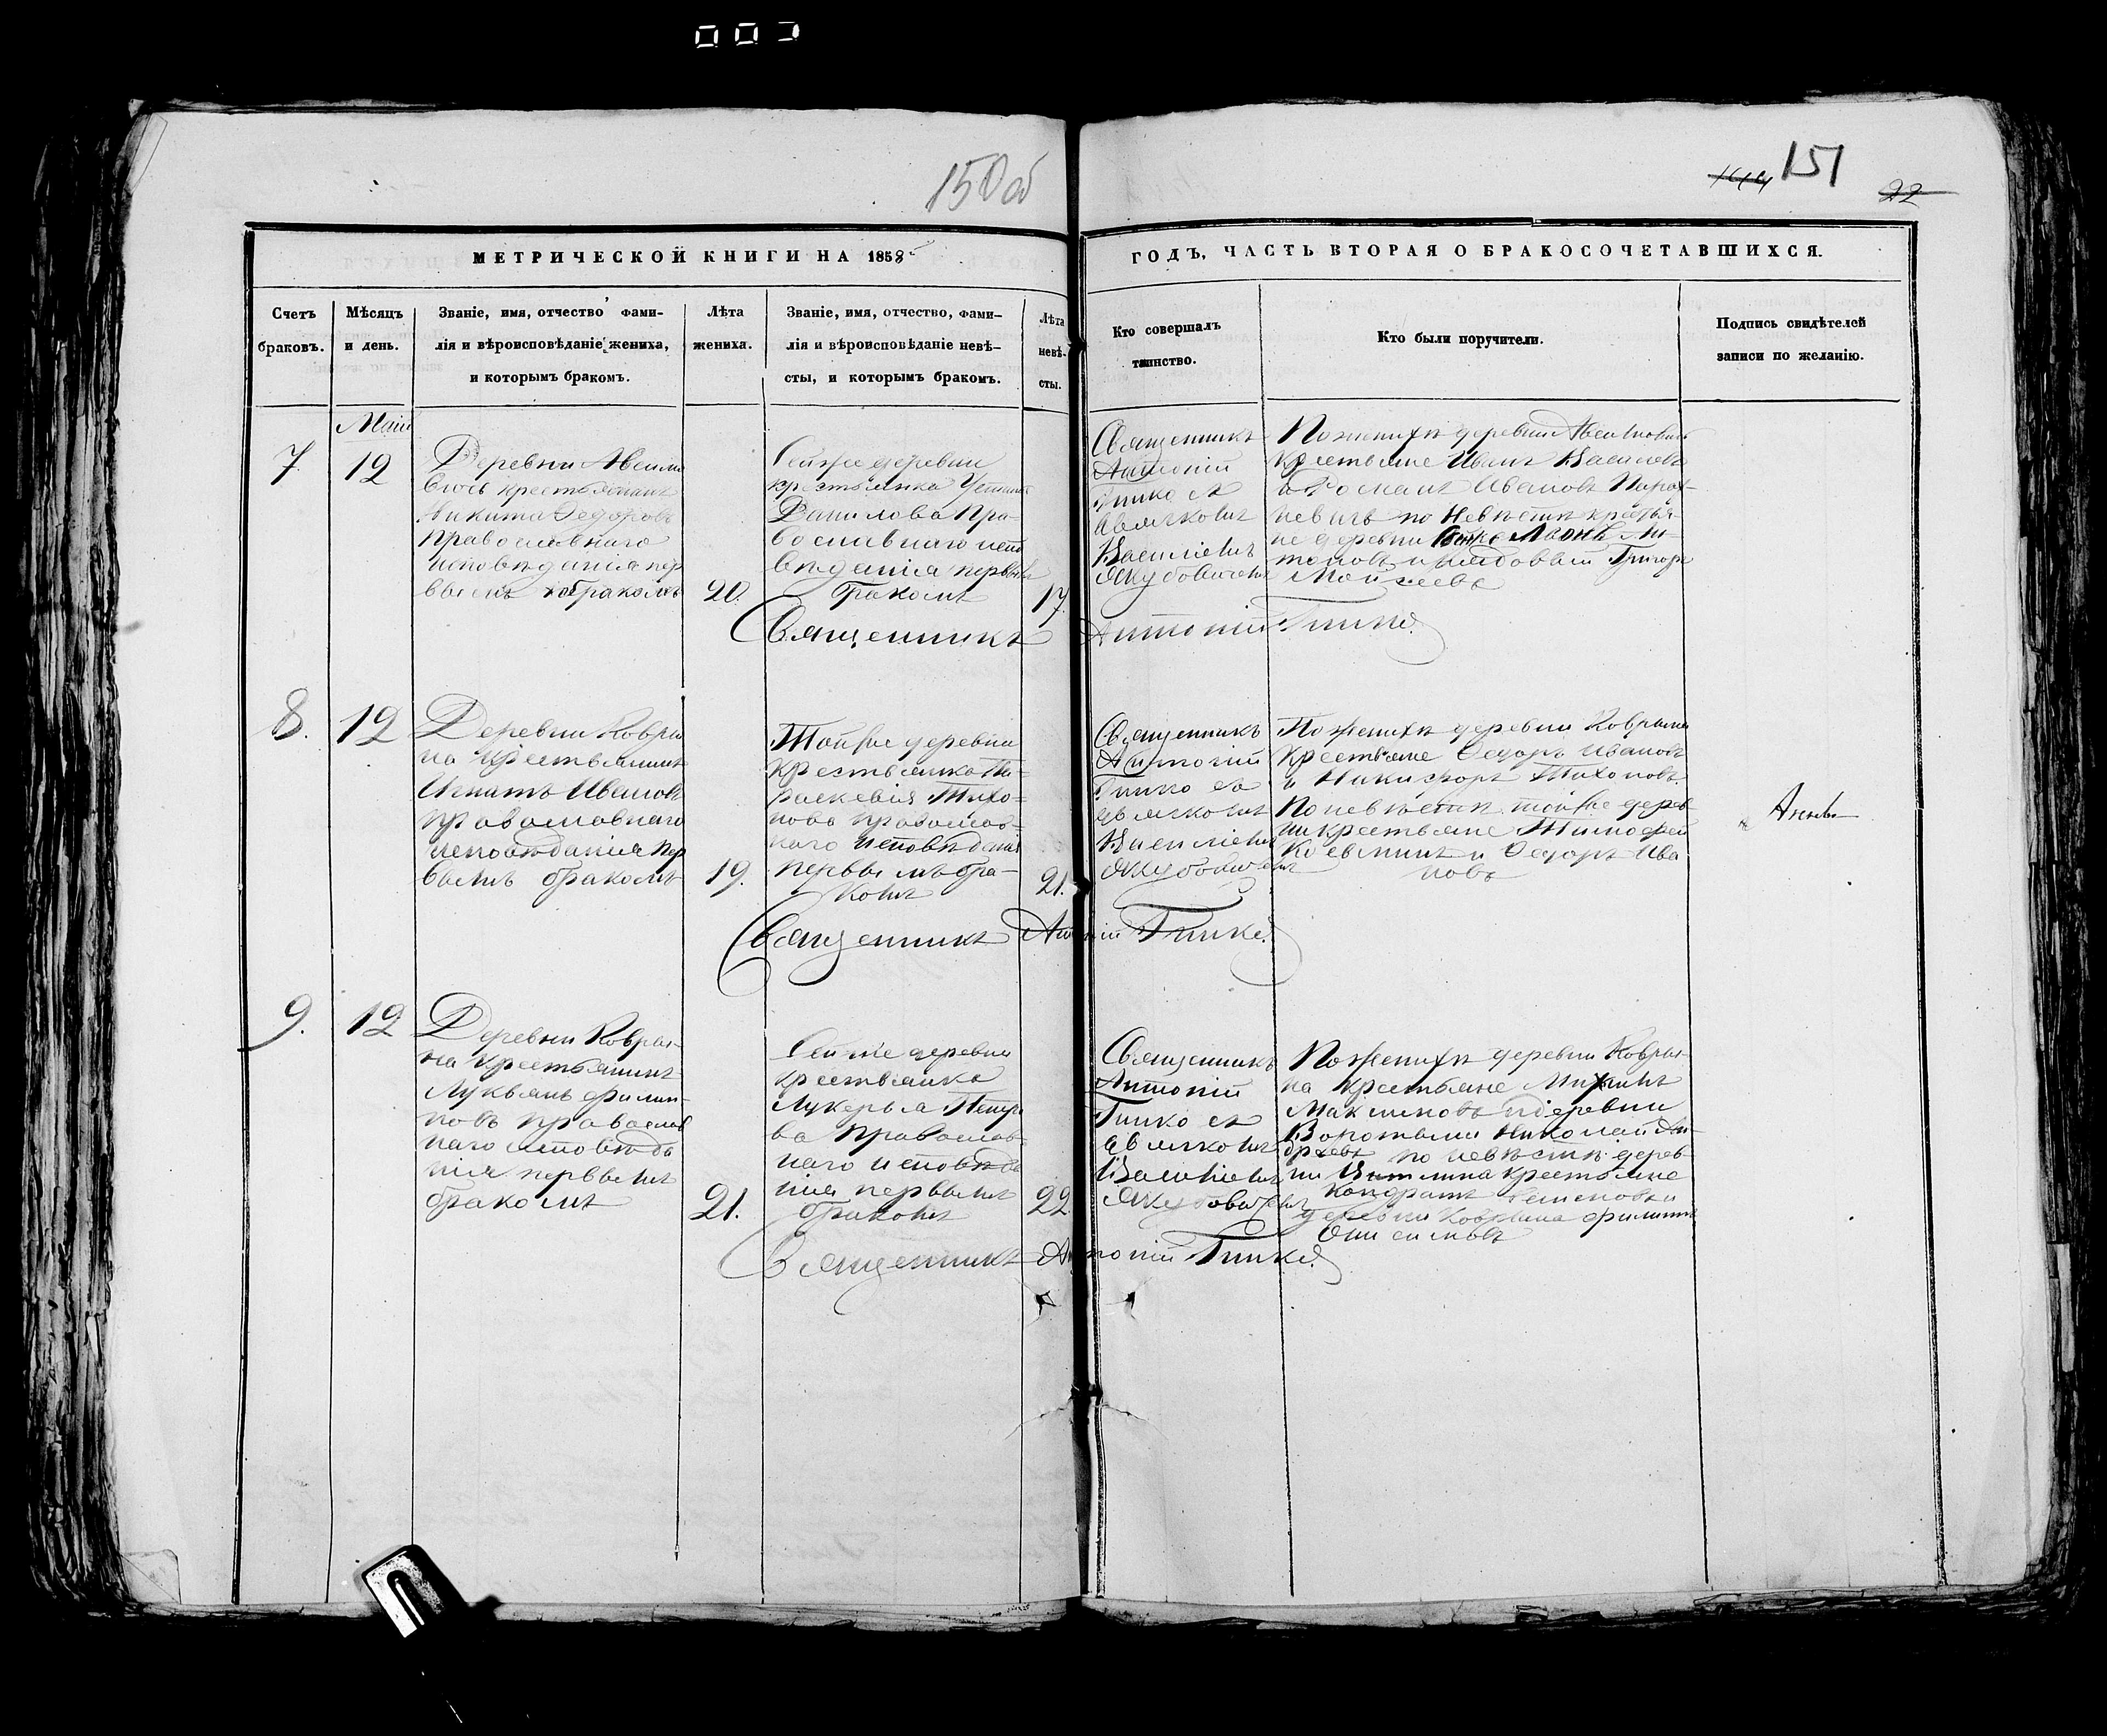 150 об
151
22
МЕТРИЧЕСКОЙ КНИГИ НА 1858
ГОДЪ, ЧАСТЬ ВТОРАЯ О БРАКОСОЧЕТАВШИХСЯ.
Счетъ
браковъ.
Мѣсяцъ
и день.
Званіе, имя, отчество фами-
лія и вѣроисповѣданіе жениха,
и которымъ бракомъ.
Лѣта
жениха.
Званіе, имя, отчество, фами-
лія и вѣроисповѣданіе невѣ-
сты, и которымъ бракомъ.
Лѣта
невѣ-
сты.
Кто совершалъ
таинство.
Кто были поручители.
Подпись свидѣтелей
записи по желанію.
Маій
7.
12
Деревни
крестьянинъ
Никита Федоровъ
православнаго
исповѣданія пер
вымъ бракомъ
20.
Сейже деревни
крестьянка
Данилова пра-
вославнаго испо
вѣданія первымъ
бракомъ
17.
Священникъ
Антоній
Гинко съ
дьячкомъ
Василіемъ
Якубовичемъ
По женихѣ деревни
крестьяне Иванъ Василевъ
и Романъ Ивановъ
по невѣстѣ крестья-
не деревни
Григорій
Моисеевъ
Священникъ Антоній Гинко
8.
12
Деревни Ковры
на крестьянинъ
Игнатъ Ивановъ
православнаго
исповѣданія пер
вымъ бракомъ
19.
Тойже деревни
крестьянка Па-
раскевія Тихо-
нова православ-
наго исповѣданія
первымъ бра-
комъ
21.
Священникъ
Антоній
Гинко съ
дьячкомъ
Василіемъ
Якубовичемъ
По женихѣ деревни Коврына
крестьяне Федоръ Ивановъ
и Никифоръ Тихоновъ
По невѣстѣ тойже дерев
ни крестьяне Тимофей
и Федоръ Ива
новъ
Священникъ Антоній Гинко
9.
12
Деревни Ковры-
на крестьянинъ
Лукьянъ Филип-
повъ православ
наго исповѣда
нія первымъ
бракомъ
21.
Сейже деревни
крестьянка
Лукерья Петро
ва православ-
наго исповѣда
нія первымъ
бракомъ
22
Священникъ
Антоній
Гинко съ
дьячкомъ
Василіемъ
Якубовичемъ
По женихѣ деревни Ковры-
на крестьяне
Максимовъ и деревни
Николай Ан-
дреевъ по невѣстѣ дерев-
ни крестьяне
Кондратъ и
деревни Коврына Филиппъ
Онисимовъ
Священникъ Антоній Гинко